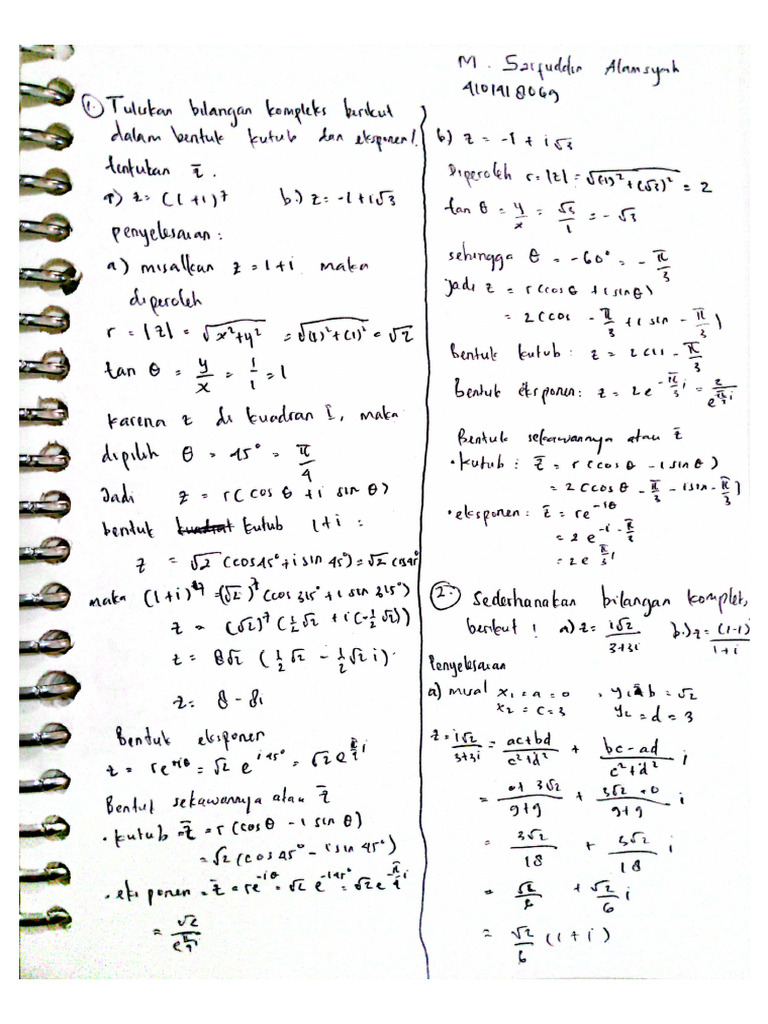 M. Saifuddin Alamsyah
4101418069
1. Tulukan bilangan kompleks berikut
dalam bentuk kutub dan eksponen!
tentukan z̄.
a) z = (1+i)⁷ b.) z = -1+i√3
penyelesaian:
a) misalkan z = 1+i maka
diperoleh
r = |z| = √x²+y² = √(1)²+(1)² = √2
tan θ = y/x = 1/1 = 1
karena z di kuadran I, maka
dipilih θ = 45° = π/4
Jadi z = r(cos θ + i sin θ)
bentuk kutub 1+i :
z = √2 (cos 45° + i sin 45°) = √2 cis 45°
maka (1+i)⁷ = (√2)⁷ (cos 315° + i sin 315°)
z = (√2)⁷ (½√2 + i(-½√2))
z = 8√2 (½√2 - ½√2 i).
z = 8 - 8i
Bentuk eksponen
z = re^(iθ) = √2 e^(i45°) = √2 e^(π/4 i)
Bentuk sekawannya atau z̄
• kutub z̄ = r(cos θ - i sin θ)
= √2 (cos 45° - i sin 45°)
• eksponen = z̄ = re^(-iθ) = √2 e^(-i45°) = √2 e^(-π/4 i)
= √2/e^(π/4 i)
b) z = -1 + i√3
Diperoleh r = |z| = √(1)²+(√3)² = 2
tan θ = y/x = √3/1 = -√3
sehingga θ = -60° = -π/3
Jadi z = r(cos θ + i sin θ)
= 2(cos -π/3 + i sin -π/3)
Bentuk kutub : z = 2 cis -π/3
Bentuk eksponen: z = 2e^(-π/3 i) = 2/e^(π/3 i)
Bentuk sekawannya atau z̄
• kutub : z̄ = r(cos θ - i sin θ)
= 2(cos θ -π/3 - i sin -π/3)
• eksponen : z̄ = re^(-iθ)
= 2e^(-i -π/3)
= 2e^(π/3 i)
2. Sederhanakan bilangan komplek,
berikut ! a) z = i√2/3+3i b.) z = (1-i)/1+i
Penyelesaian
a) misal x₁ = a = 0 , y₁ = b = √2
x₂ = c = 3 y₂ = d = 3
z = i√2/3+3i = ac+bd/c²+d² + bc-ad/c²+d² i
= 0+3√2/9+9 + 3√2+0/9+9 i
= 3√2/18 + 3√2/18 i
= √2/6 + √2/6 i
= √2/6 (1+i)